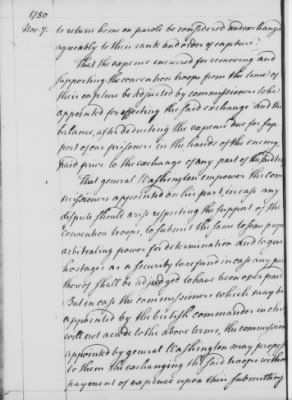 1780
Nov. 7. to return home on parole be considered and exchanged
agreeably to their rank and order of capture:
That the expence incurred for removing and
supporting the convention troops from the time of
their capture be adjusted by commissioners to be
appointed for effecting the said exchange and the
balance, after deducting the expence due for sup
port of our prisoners in the hands of the enemy,
paid prior to the exchange of any part of the
That general Washington empower the com
missioners appointed on his part, in case any
dispute should arise respecting the support of the
convention troops, to submit the same to some proper
arbitrating power for determination and to give
hostages as a security to refund in case any part
thereof shall be adjudged to have been over paid
But in case the commissioners which may be
appointed by the british commander in chief
will not accede to the above terms, the commissioners
appointed by general Washington may propose
to them the exchanging the said troops without
payment of expence upon their submitting